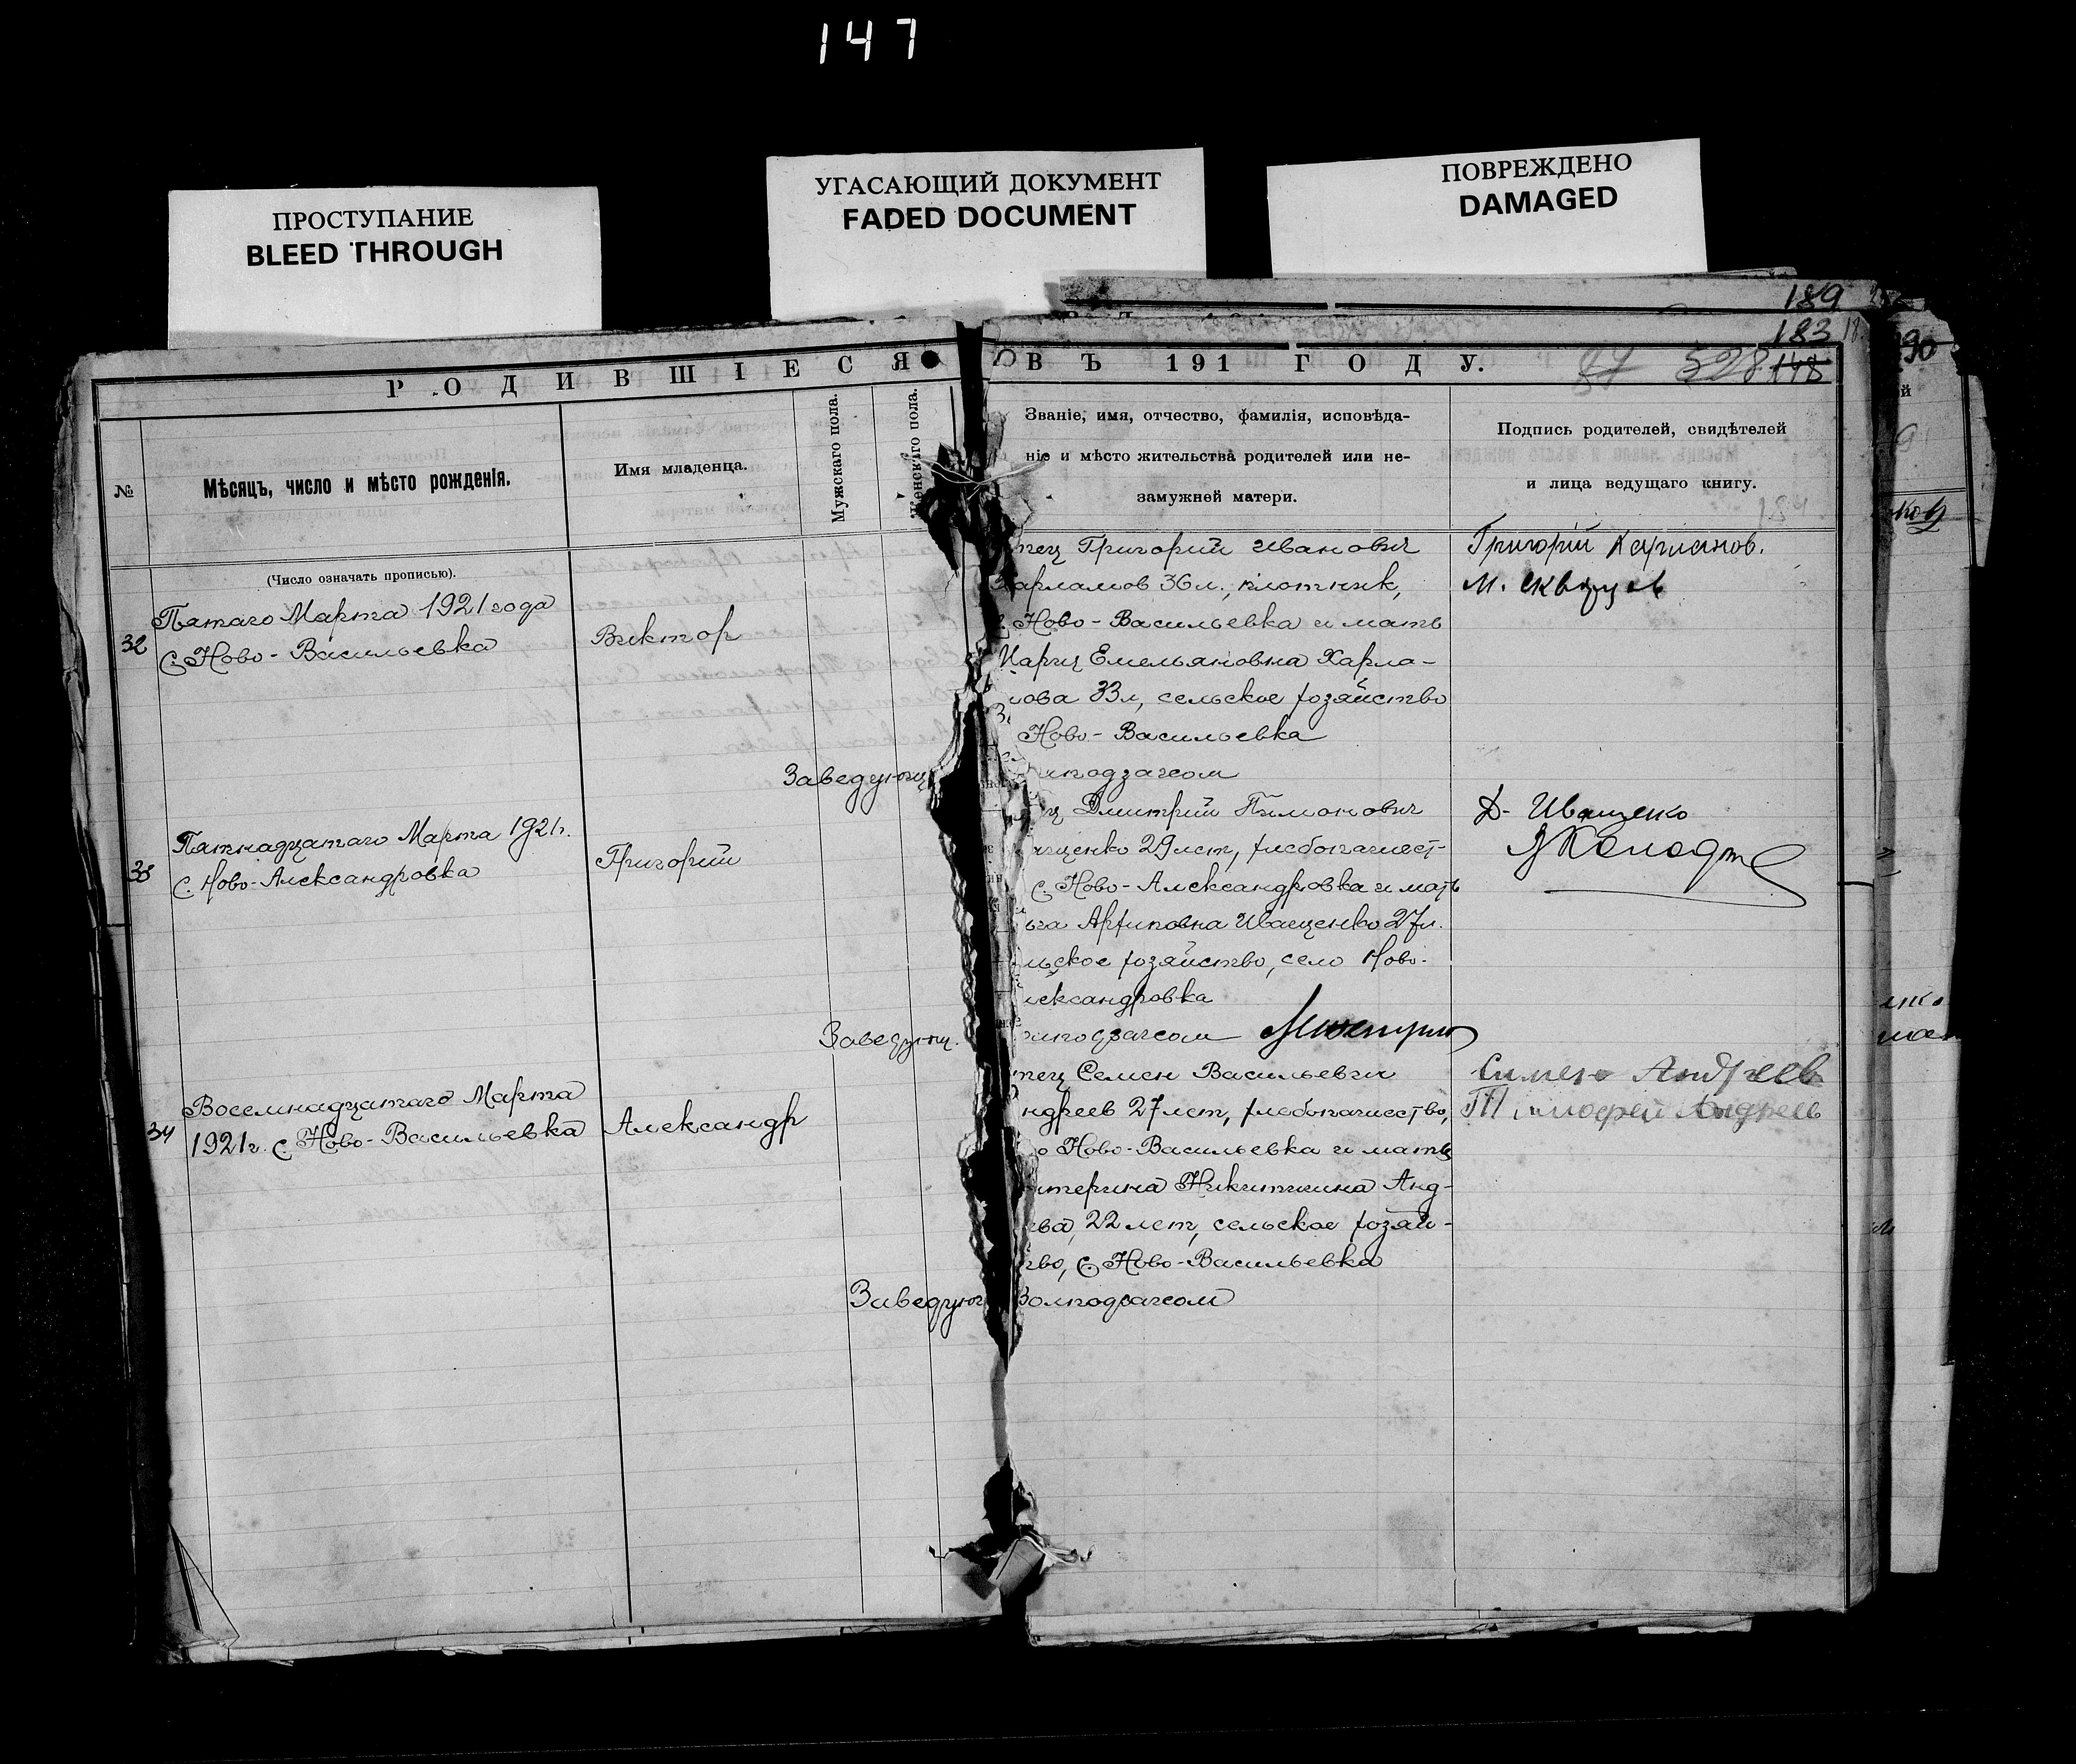 147
ПРОСТУПАНИЕ
BLEED THROUGH
УГАСАЮЩИЙ ДОКУМЕНТ
FADED DOCUMENT
ПОВРЕЖДЕНО
DAMAGED
189
183
148
РОДИВШІЕСЯ
ВЪ 191 ГОДУ.
№
Мѣсяцъ, число и мѣсто рожденія.
Имя младенца.
Мужскаго пола.
Женскаго пола.
Званіе, имя, отчество, фамилія, исповѣда-
ніе и мѣсто жительства родителей или не-
замужней матери.
Подпись родителей, свидѣтелей
и лица ведущаго книгу.
184
(Число означать прописью).
32
Пятаго Марта 1921 года
С. Ново-Васильевка
Виктор
тец Григорий Иванович
Харламов 36 л., плотник,
Ново-Васильевка и мать
Емельяновна Харла-
мова 33 л, сельское хозяйство
Ново-Васильевка
Заведующ
подзагсом
Григорий
33
Пятнадцатаго Марта 1921 г.
С. Ново-Александровка
Григорий
ц Дмитрий Пимонович
ащенко 29 лет, хлебопашест-
С. Ново-Александровка и мать
Архиповна Иващенко 27 л.
льское хозяйство, село Ново-
лександровка
Заведующ.
подзагсом
Д. Иващенко
34
Восемнадцатаго Марта
1921 г. С. Ново-Васильевка
Александр
тец Семен Васильевич
ндреев 27 лет, хлебопашество,
о Ново-Васильевка и мать
атерина Никитична Анд-
ева, 22 лет, сельское хозяй-
тво, С. Ново-Васильевка
Заведующ
Волподзагсом
Андреев
Тимофей Андреев